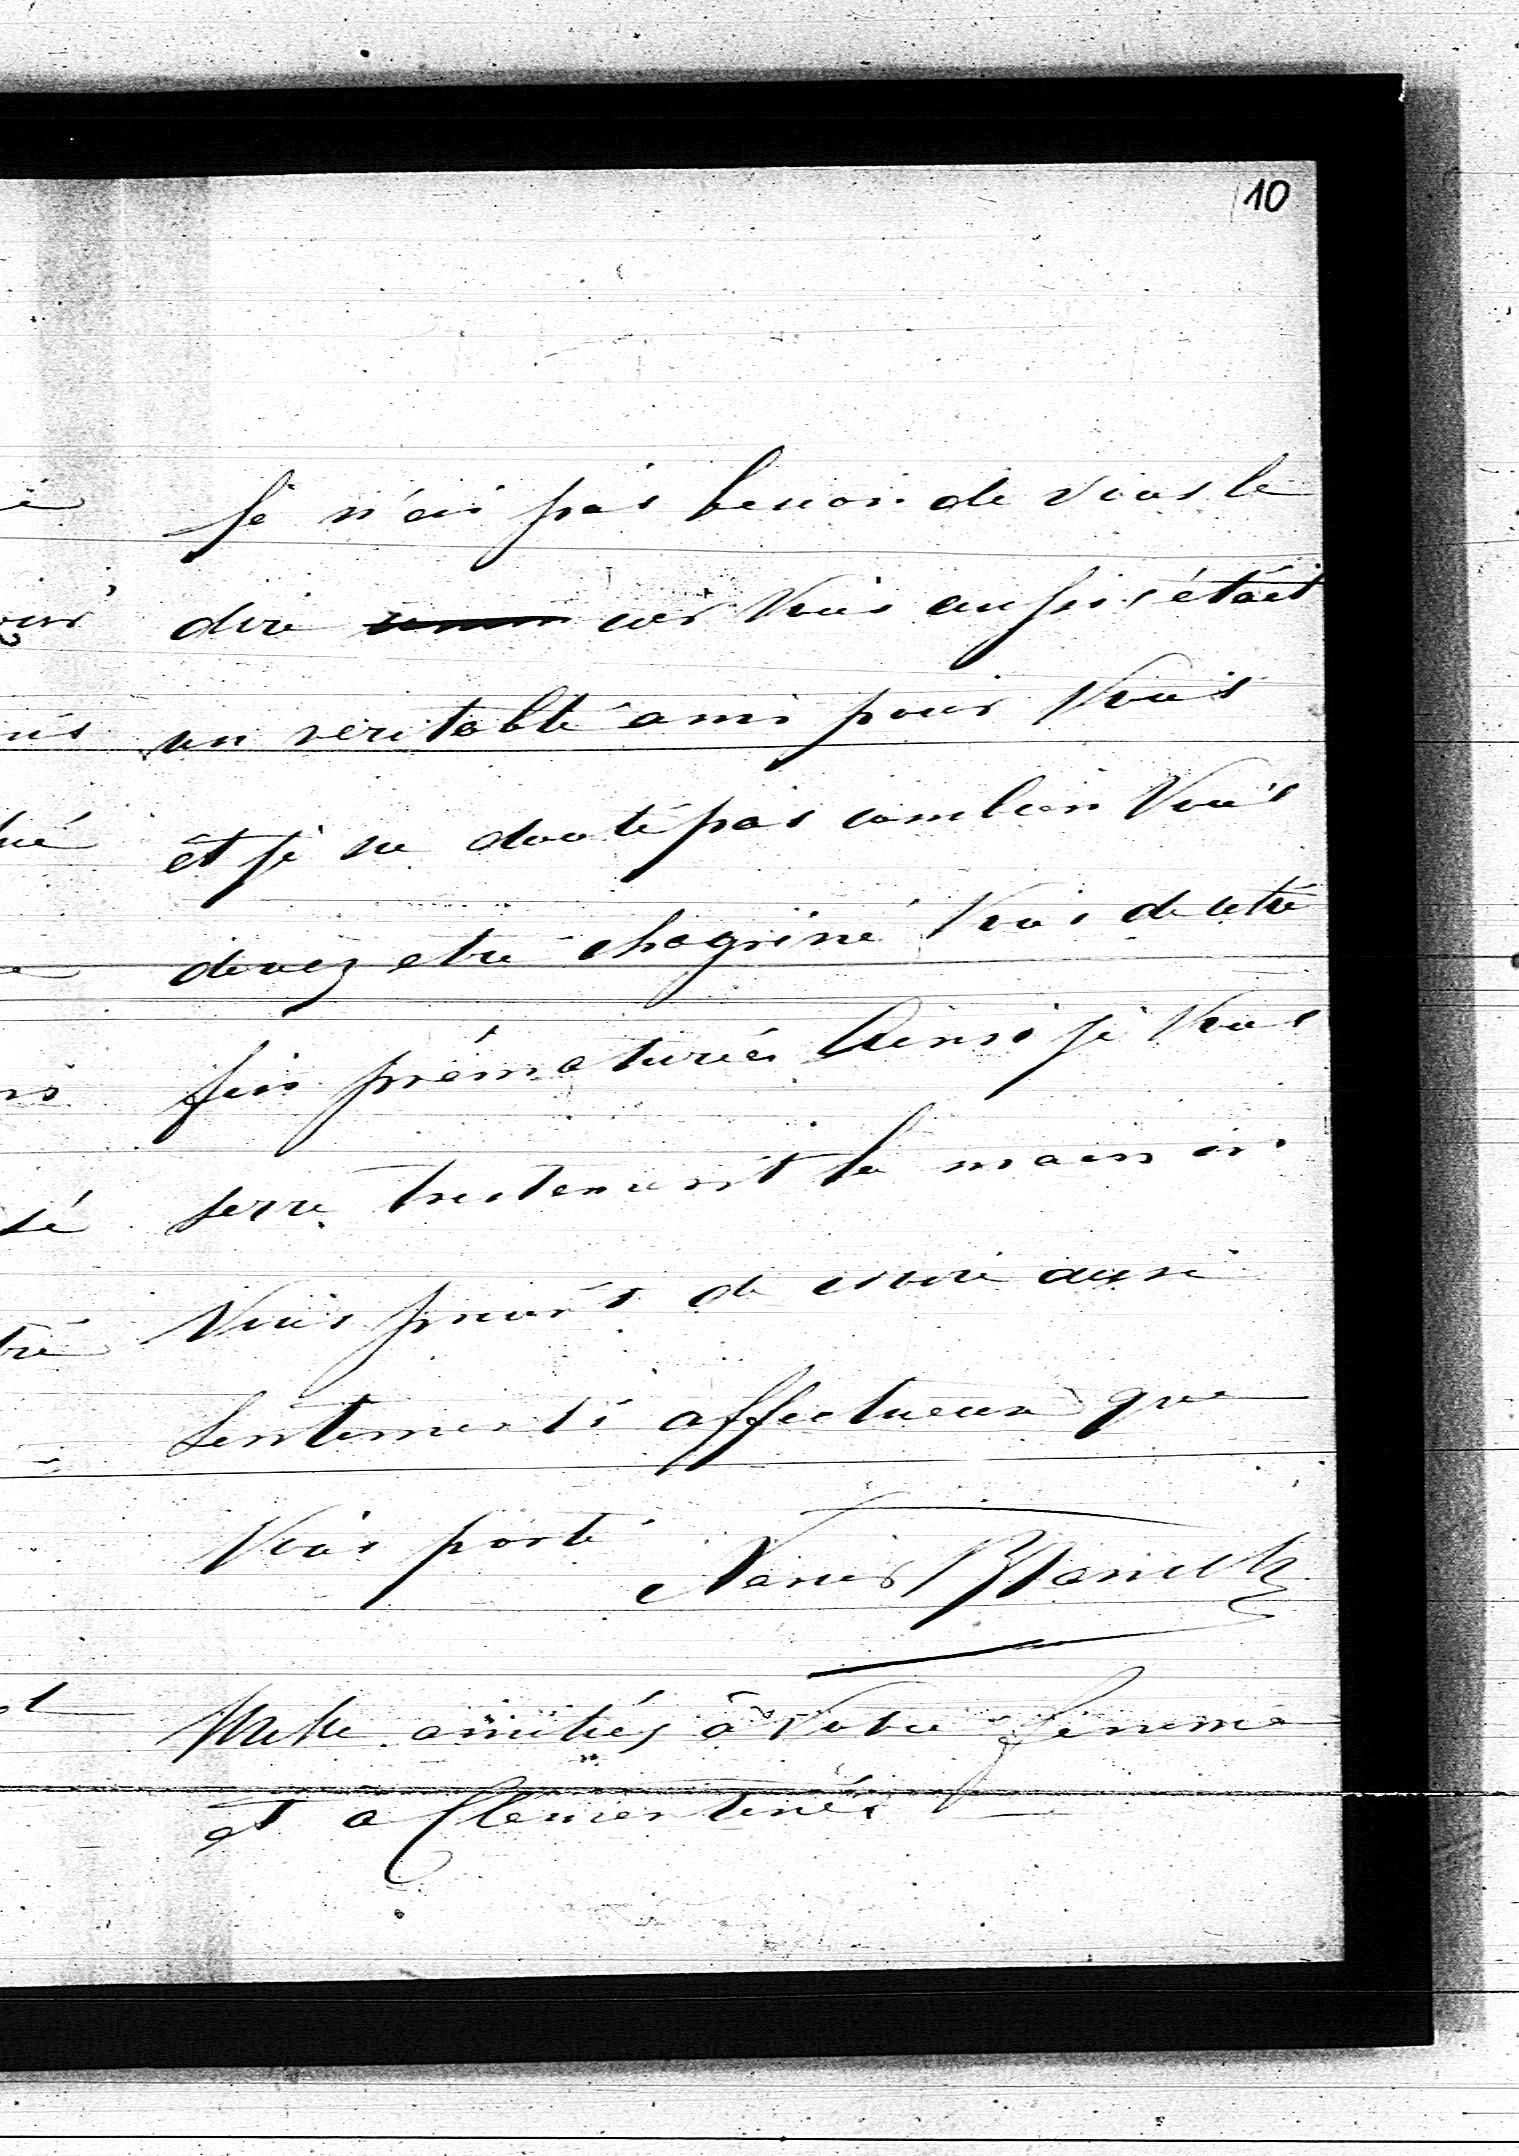 10
Je n'ai pas besoin de vous le
dire car Vous aussi c'était
un veritable ami pour Vous
et je ne doute pas combien Vous
devez etre chagriné Vous de cette
fin prématurée Ainsi je Vous
serre tristement la main
Vous priant de croire aussi
sentiments affectueux que
Vous porte
Mille amitiés à Votre femme
et a Clementine